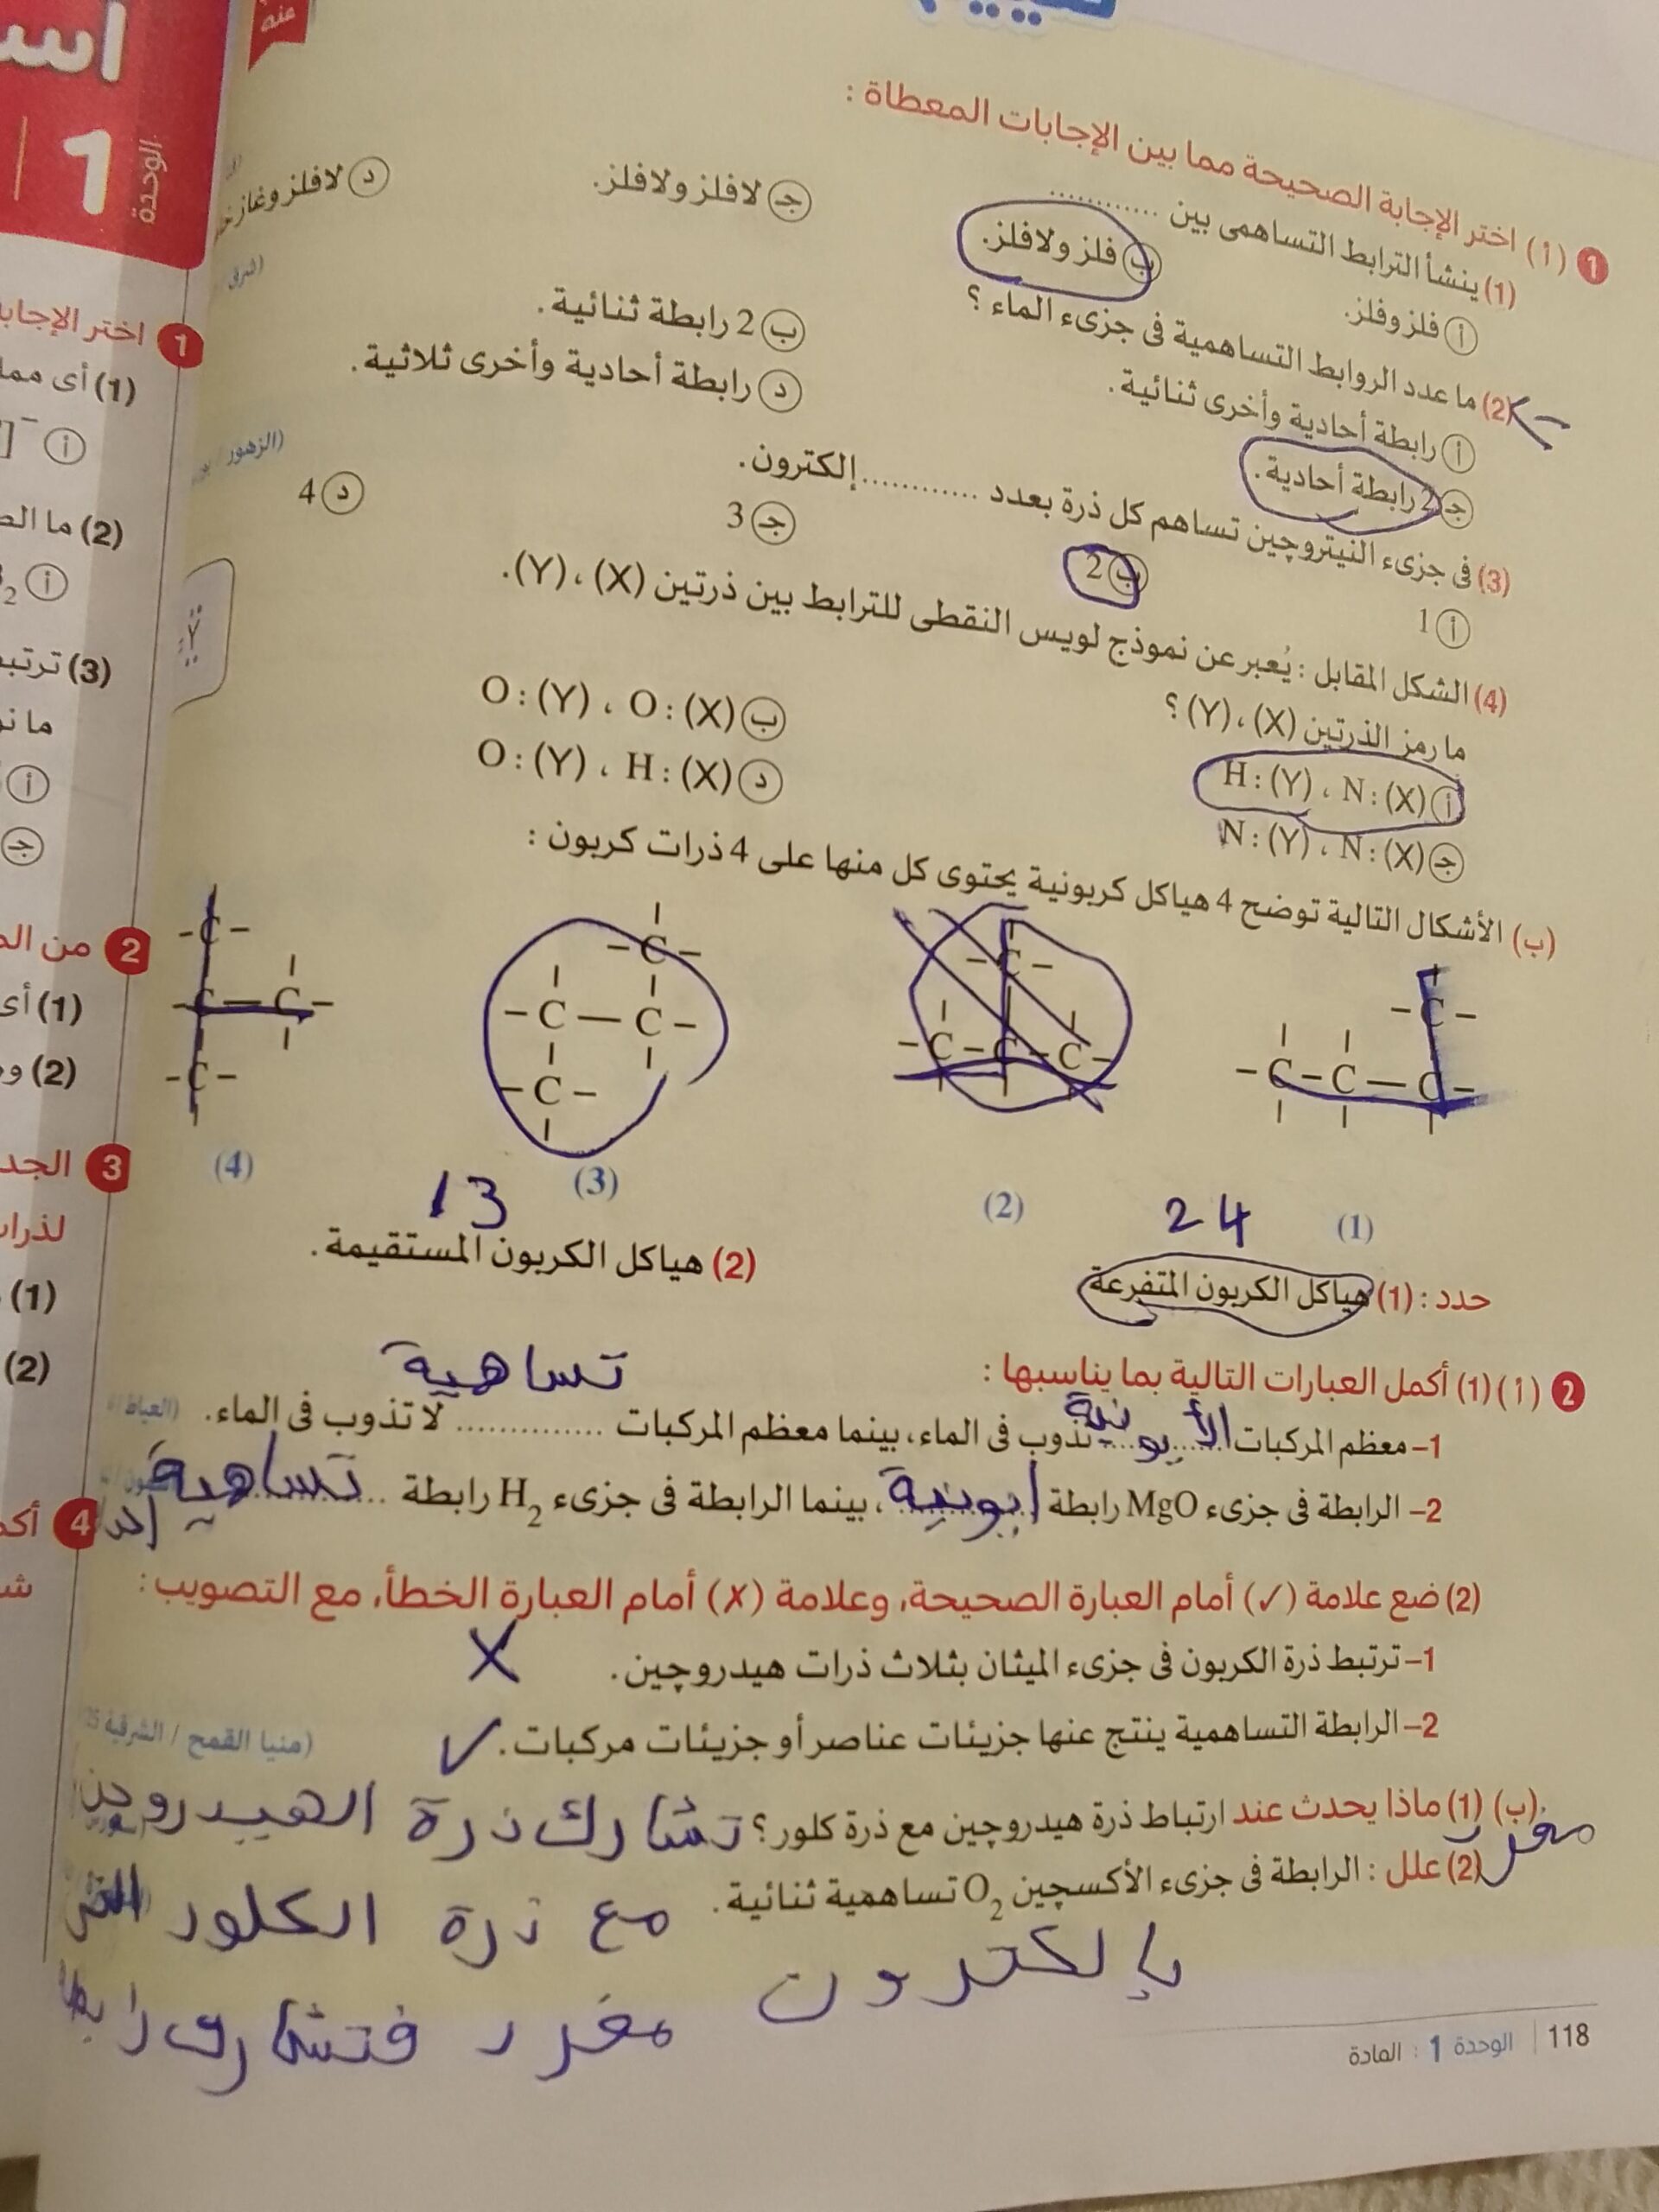 اس
1
الوحدة
منه
1 (أ) اختر الإجابة الصحيحة مما بين الإجابات المعطاة :
(1) ينشأ الترابط التساهمى بين ............
أ فلز وفلز.
ب فلز ولافلز.
جـ لافلز ولافلز.
د لافلز وغاز
(2) ما عدد الروابط التساهمية فى جزىء الماء ؟
أ رابطة أحادية وأخرى ثنائية.
ب 2 رابطة ثنائية.
جـ 2 رابطة أحادية.
د رابطة أحادية وأخرى ثلاثية.
(3) فى جزىء النيتروچين تساهم كل ذرة بعدد ............ إلكترون.
(الزهور /
أ 1
ب 2
جـ 3
د 4
(4) الشكل المقابل : يُعبر عن نموذج لويس النقطى للترابط بين ذرتين (X) ، (Y).
ما رمز الذرتين (X) ، (Y) ؟
أ (X) : N ، (Y) : H
ب (X) : O ، (Y) : O
جـ (X) : N ، (Y) : N
د (X) : H ، (Y) : O
Y
(ب) الأشكال التالية توضح 4 هياكل كربونية يحتوى كل منها على 4 ذرات كربون :
C C C C
C C C C
C C C C
C C C C
(1)
(2)
(3)
(4)
2 4
1 3
حدد : (1) هياكل الكربون المتفرعة
(2) هياكل الكربون المستقيمة.
2 (أ) (1) أكمل العبارات التالية بما يناسبها :
تساهية
1- معظم المركبات الأيونية تذوب فى الماء، بينما معظم المركبات ............ لا تذوب فى الماء.
(العياط /
2- الرابطة فى جزىء MgO رابطة أيونية ، بينما الرابطة فى جزىء H2 رابطة ............ تساهية
(2) ضع علامة (✓) أمام العبارة الصحيحة، وعلامة (✗) أمام العبارة الخطأ، مع التصويب :
1- ترتبط ذرة الكربون فى جزىء الميثان بثلاث ذرات هيدروچين. X
2- الرابطة التساهمية ينتج عنها جزيئات عناصر أو جزيئات مركبات. ✓
(منيا القمح / الشرقية 25
(ب) (1) ماذا يحدث عند ارتباط ذرة هيدروچين مع ذرة كلور ؟ تشارك ذرة الهيدروجن
(2) علل : الرابطة فى جزىء الأكسچين O2 تساهمية ثنائية.
مع ذرة الكلور
بإلكترون
مفرد
118 | الوحدة 1 : المادة
1 اختر الإجابة
(1) أى مما
أ
(2) ما الص
أ
(3) ترتب
ما نو
أ
جـ
2 من الم
(1) أى
(2) و
3 الجد
لذرات
(1)
(2)
4 أكم